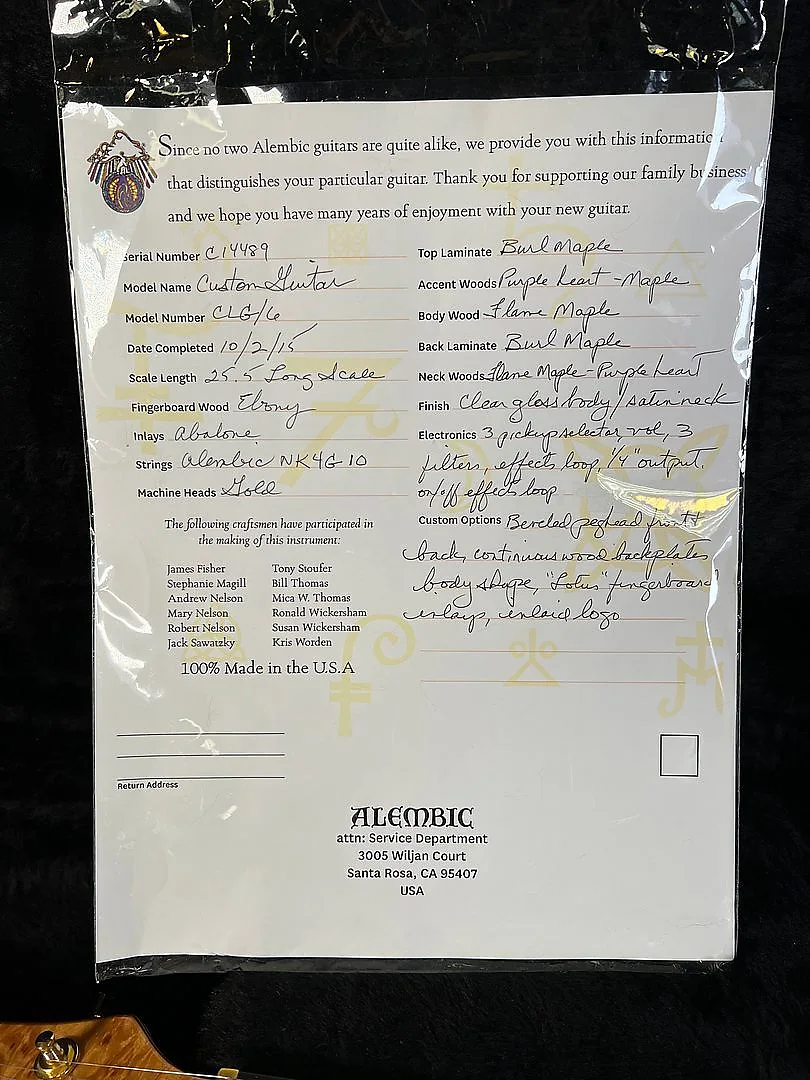 Since no two Alembic guitars are quite alike, we provide you with this information
that distinguishes your particular guitar. Thank you for supporting our family business
and we hope you have many years of enjoyment with your new guitar.
Serial Number C14489
Model Name Custom Guitar
Model Number CLG/6
Date Completed 10/2/15
Scale Length 25.5 Long Scale
Fingerboard Wood Ebony
Inlays abalone
Strings alembic NK4G10
Machine Heads Gold
The following craftsmen have participated in
the making of this instrument:
James Fisher Tony Stoufer
Stephanie Magill Bill Thomas
Andrew Nelson Mica W. Thomas
Mary Nelson Ronald Wickersham
Robert Nelson Susan Wickersham
Jack Sawatzky Kris Worden
100% Made in the U.S.A
Top Laminate Burl Maple
Accent Woods Purple heart - Maple
Body Wood Flame Maple
Back Laminate Burl Maple
Neck Woods Flame Maple - Purple heart
Finish Clear gloss body / satin neck
Electronics 3 pickup selector, vol, 3
filters, effects loop, 1/4" output.
on/off effects loop
Custom Options Beveled peghead front +
back, continuous wood backplates
body shape, "Lotus" fingerboard
inlays, inlaid logo
Return Address
ALEMBIC
attn: Service Department
3005 Wiljan Court
Santa Rosa, CA 95407
USA